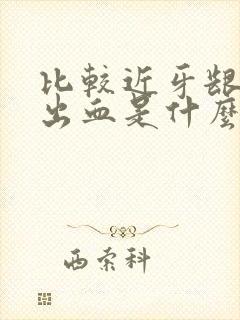 比較近牙龈
出血是什麼
西索科